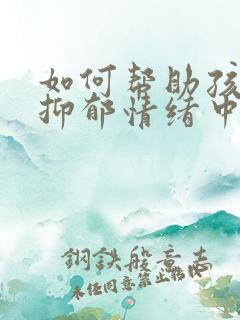 如何帮助孩
抑郁情绪中
鋼鉄般意志
未经同意禁止转载